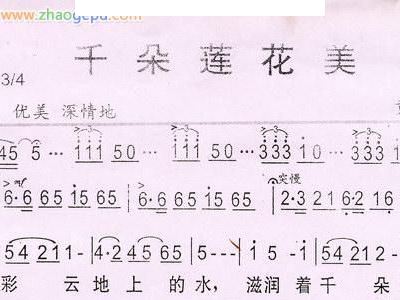 www.zhaogepu.com
千朵莲花美
3/4
优美 深情地
45 5 ··· 111 50 ··· 111 50 ··· 333 10 ··· 333
>mf 6·6 65 15 65 | 6·6 65 15 65 | 突慢 2·3 21 6·2 16
54 21 - | 4·2 45 65 | 5 - - - | 1 5 - 1 | 54 21 2
彩 云 地 上 的 水, 滋 润 着 千 朵